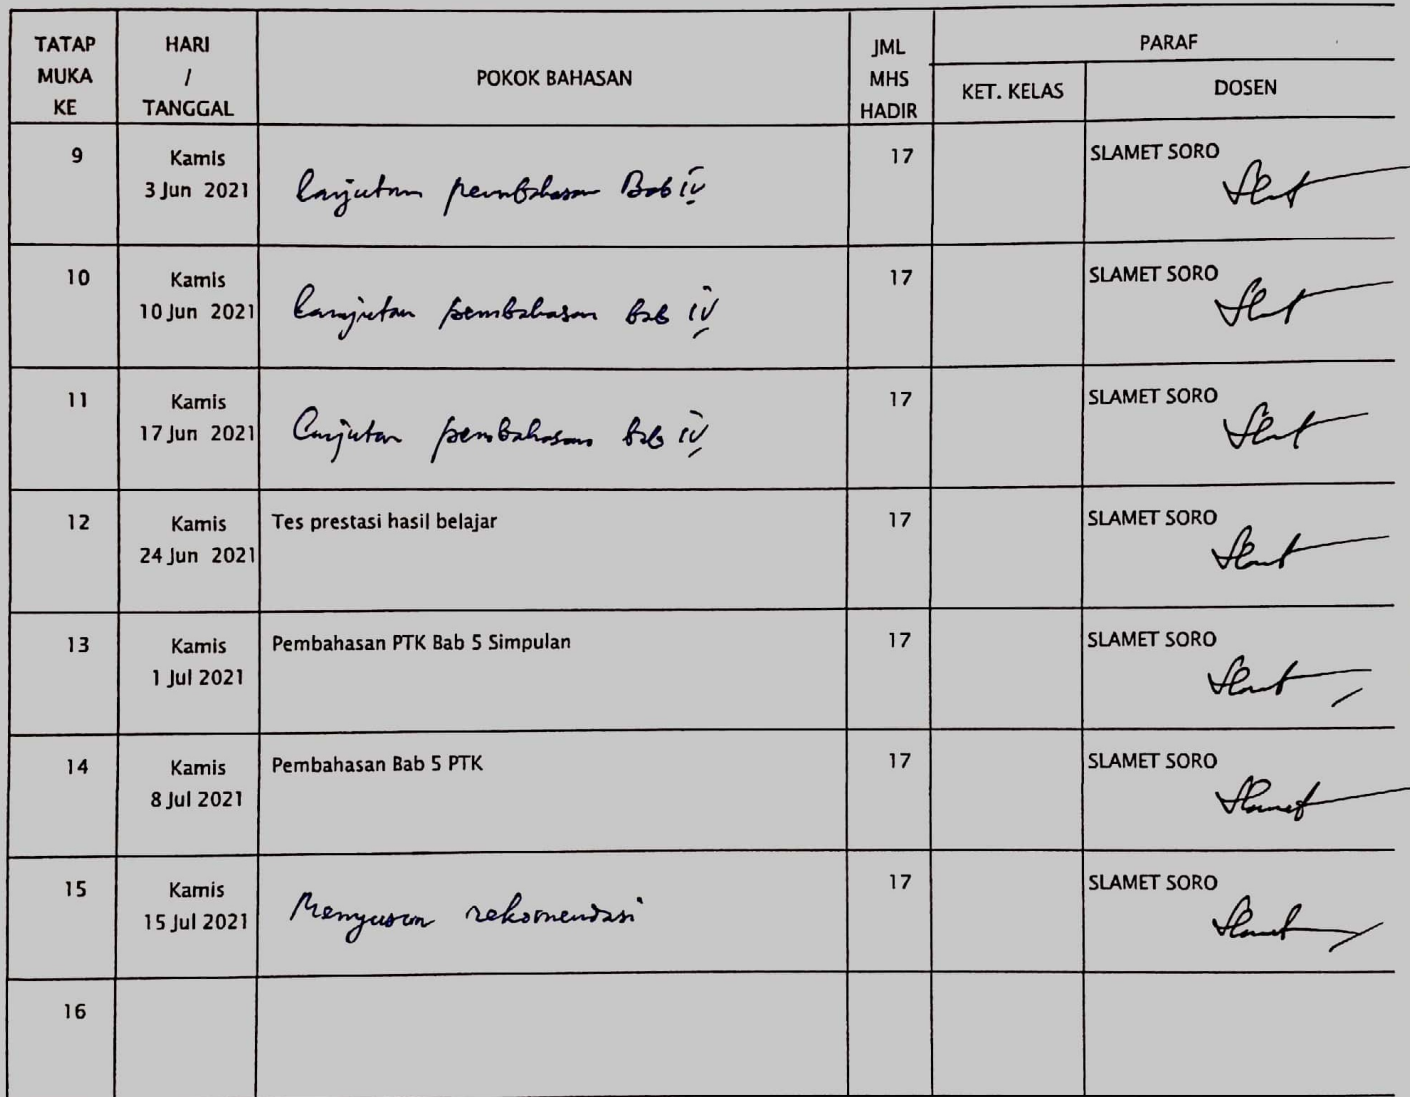 TATAP MUKA KE
HARI / TANGGAL
POKOK BAHASAN
JML MHS HADIR
PARAF
KET. KELAS
DOSEN
9
Kamis
3 Jun 2021
lanjutan pembahasan Bab IV
17
SLAMET SORO
10
Kamis
10 Jun 2021
lanjutan pembahasan bab IV
17
SLAMET SORO
11
Kamis
17 Jun 2021
lanjutan pembahasan bab IV
17
SLAMET SORO
12
Kamis
24 Jun 2021
Tes prestasi hasil belajar
17
SLAMET SORO
13
Kamis
1 Jul 2021
Pembahasan PTK Bab 5 Simpulan
17
SLAMET SORO
14
Kamis
8 Jul 2021
Pembahasan Bab 5 PTK
17
SLAMET SORO
15
Kamis
15 Jul 2021
Menyusun rekomendasi
17
SLAMET SORO
16